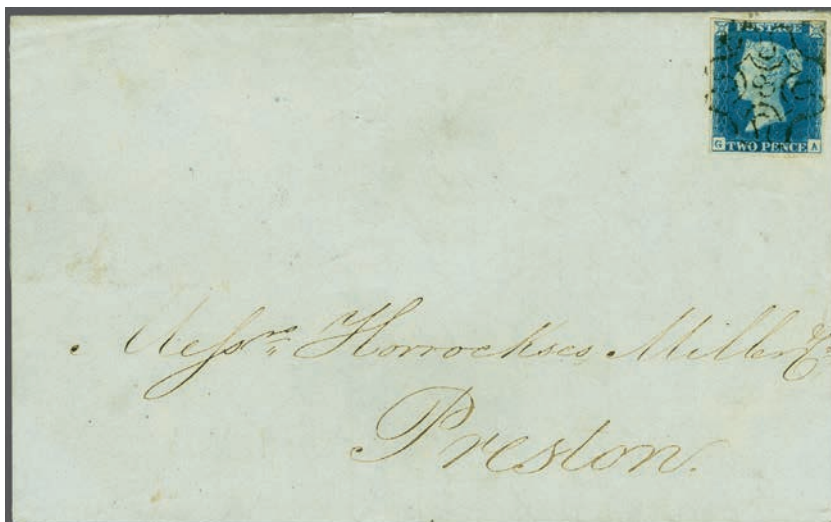 POSTAGE
G TWO PENCE A
Messrs Horrockses Miller & Co
Preston.